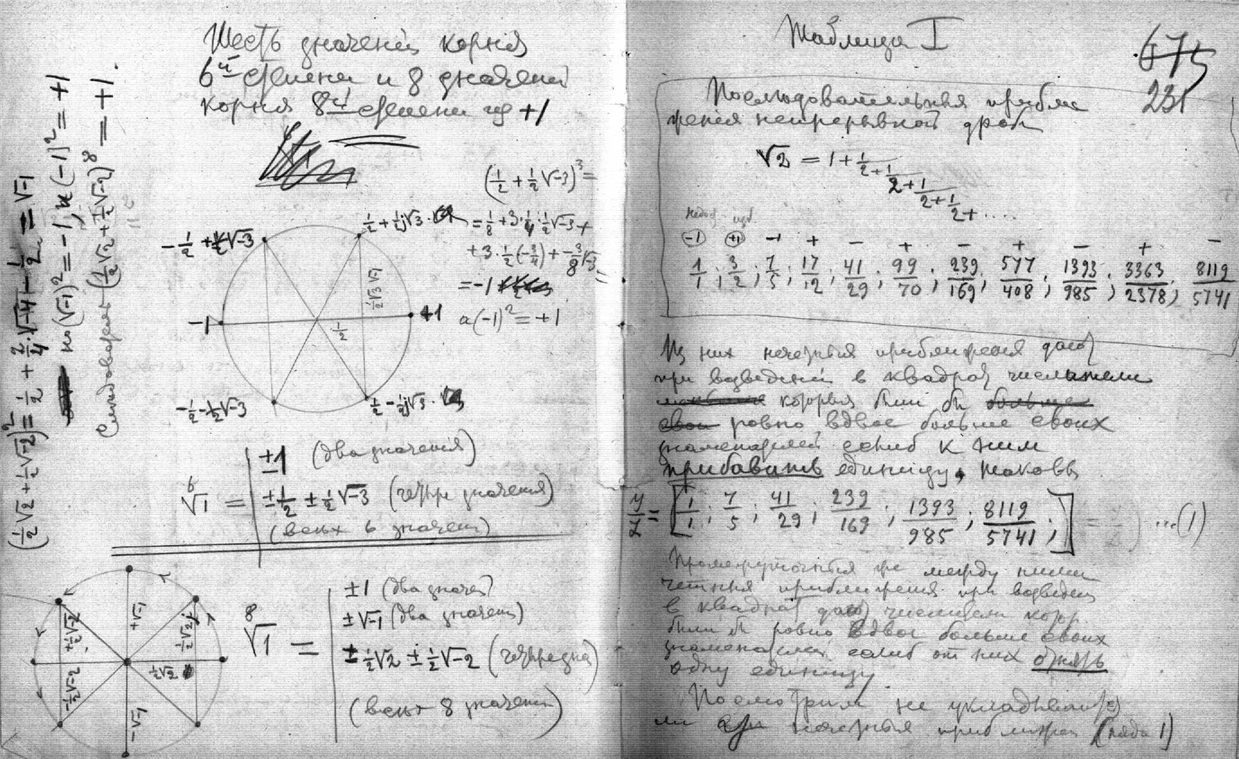 Шесть значений корня
6й степени и 8 значений
корня 8й степени из +1
(½√2 + ½√-2)² = ½ + 2/4·√-4 - ½ = √-1
но (√-1)² = -1, и (-1)² = +1
Следователь (½√2 + ½√-2)⁸ = +1.
(½ + ½√-3)³ =
= ⅛ + 3·¼·½√-3 +
+ 3·½(-¾) + -3/8 √-3
= -1
а (-1)² = +1
-½ + ½√-3
-1
+1
½
-½ - ½√-3
⁶√1 =
±1 (два значения)
±½ ± ½√-3 (четыре значения)
(всех 6 значен)
+√-1
½√2
-√-1
⁸√1 =
±1 (два значен)
±√-1 (два значения)
± ½√2 ± ½√-2 (четыре зна)
(всех 8 значений)
Таблица I
675
231
Последовательныя прибли
жения непрерывной дроби
√2 = 1 + 1/2 + 1/2 + 1/2 + 1/2 + ....
(-1) (+1) - + - + - + - + -
1/1 ; 3/2 ; 7/5 ; 17/12 ; 41/29 ; 99/70 ; 239/169 ; 577/408 ; 1393/985 ; 3363/2378 ; 8119/5741
Из них нечетныя приближения дают
при возведении в квадрат числители
которыя были бы
ровно вдвое больше своих
знаменателей если б к ним
прибавить единицу, таковы
y/z = [1/1 ; 7/5 ; 41/29 ; 239/169 ; 1393/985 ; 8119/5741 ;] = ...(1)
Промежуточныя же между ними
четныя приближения при возведен
в квадрат дают числители кото
были бы ровно вдвое больше своих
знаменателей если б от них отнять
одну единицу
Посмотрим не укладывают
ли нечетныя приближен (ряда 1)